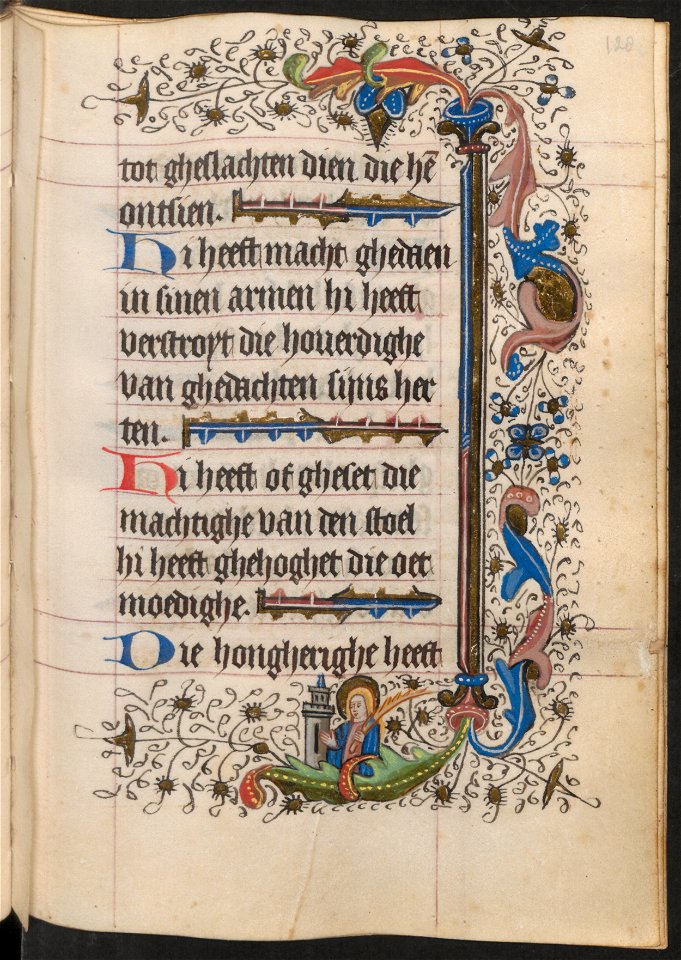 120
tot gheslachten dien die hē
ontsien.
Hi heeft macht ghedaen
in sinen armen hi heeft
verstroyt die houerdighe
van ghedachten sijns her
ten.
Hi heeft of gheset die
machtighe van den stoel
hi heeft ghehoghet die oet
moedighe.
Die hongherighe heeft